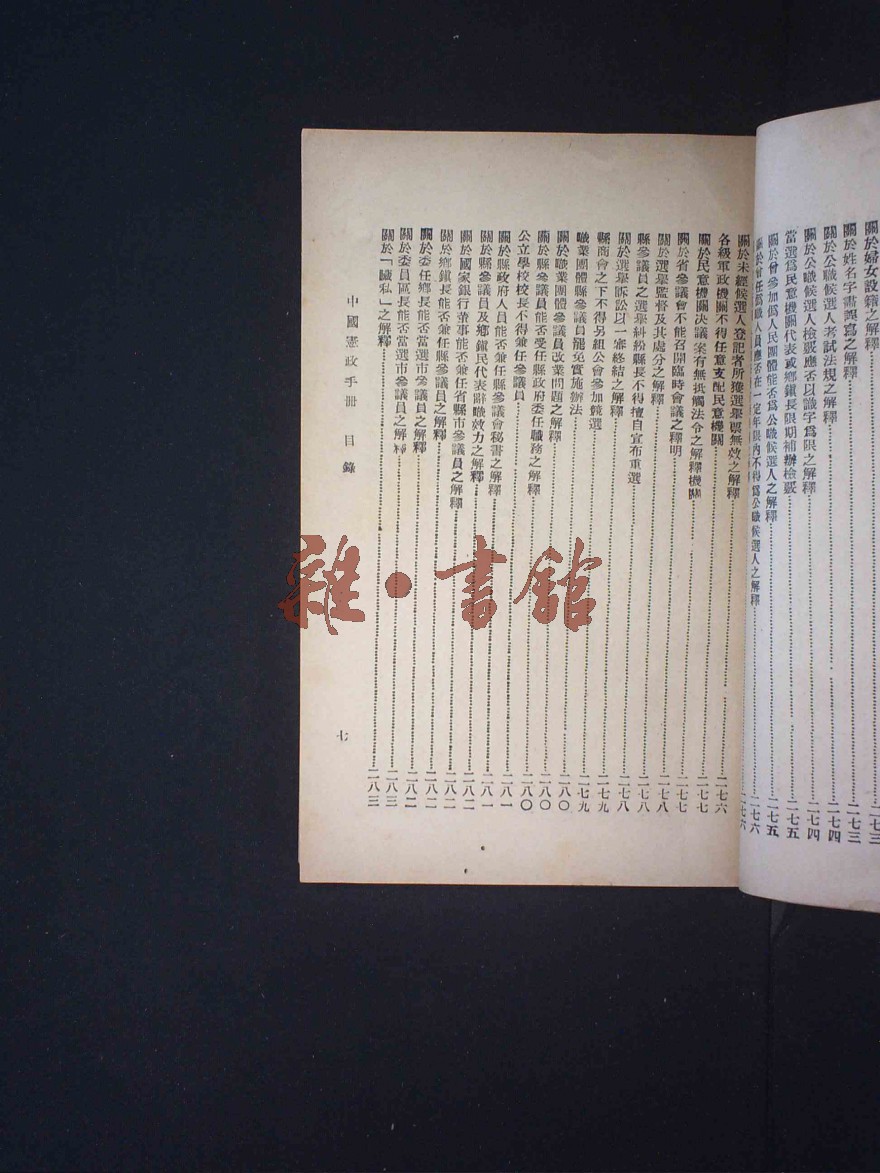 關於婦女設籍之解釋……二七三
關於姓名字畫誤寫之解釋……二七三
關於公職候選人考試法規之解釋……二七四
關於公職候選人檢覈應否以識字爲限之解釋……二七四
當選爲民意機關代表或鄉鎮長限期補辦檢覈……二七五
關於曾參加僞人民團體能否爲公職候選人之解釋……二七五
關於曾任僞職人員應否在一定年限內不得爲公職候選人之解釋……二七六
關於未經候選人登記者所獲選舉票無效之解釋……二七六
各級軍政機關不得任意支配民意機關……二七六
關於民意機關決議案有無抵觸法令之解釋機關……二七七
關於省參議會不能召開臨時會議之釋明……二七七
關於選舉監督及其處分之解釋……二七八
縣參議員之選舉糾紛縣長不得擅自宣布重選……二七八
關於選舉訴訟以一審終結之解釋……二七八
縣商會之下不得另組公會參加競選……二七九
職業團體縣參議員罷免實施辦法……二七九
關於職業團體參議員改業問題之解釋……二八〇
關於縣參議員能否受任縣政府委任職務之解釋……二八〇
公立學校校長不得兼任參議員……二八〇
關於縣政府人員能否兼任縣參議會秘書之解釋……二八一
關於縣參議員及鄉鎮民代表辭職效力之解釋……二八一
關於國家銀行董事能否兼任省縣市參議員之解釋……二八二
關於鄉鎮長能否兼任縣參議員之解釋……二八二
關於委任鄉長能否當選市參議員之解釋……二八二
關於委員區長能否當選市參議員之解釋……二八二
關於「贓私」之解釋……二八三
二八三
中國憲政手冊 目錄
七
雜·書館